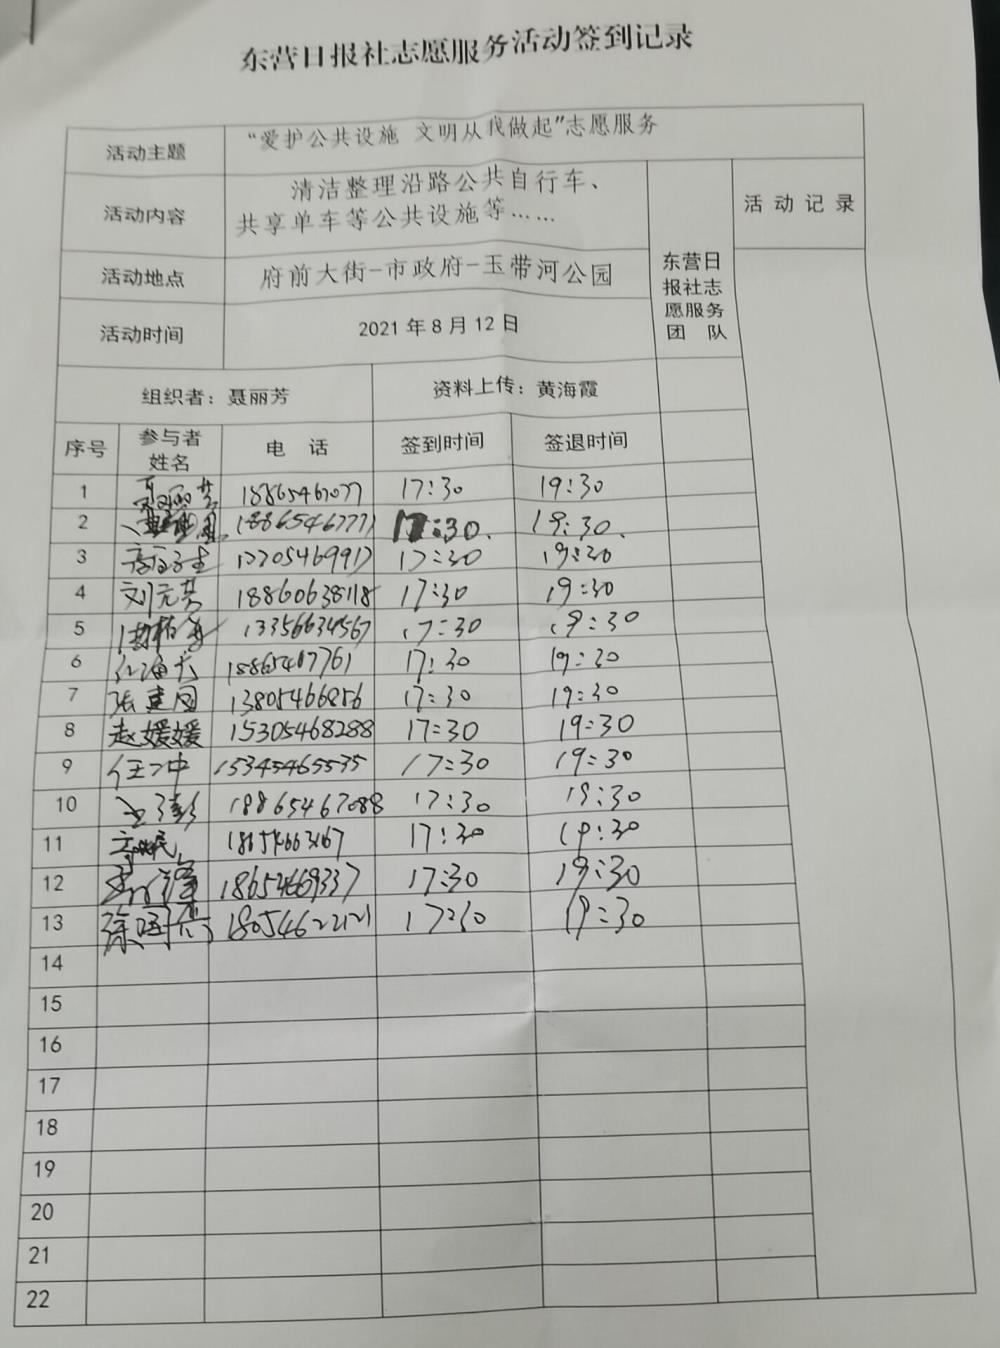 东营日报社志愿服务活动签到记录
活动主题
“爱护公共设施 文明从我做起”志愿服务
活动内容
清洁整理沿路公共自行车、
共享单车等公共设施等……
活动地点
府前大街-市政府-玉带河公园
活动时间
2021年8月12日
东营日
报社志
愿服务
团 队
活 动 记 录
组织者：聂丽芳 资料上传：黄海霞
序号 参与者姓名 电 话 签到时间 签退时间
1 18865467077 17:30 19:30
2 18865467771 17:30. 19:30.
3 17:30 19:30
4 刘元芳 18860638118 17:30 19:30
5 13356634567 17:30 19:30
6 18865467761 17:30 19:30
7 张建国 13805466856 17:30 19:30
8 赵媛媛 15305468288 17:30 19:30
9 15345465535 17:30 19:30
10 王彭 18865467088 17:30 19:30
11 17:30 19:30
12 18654669337 17:30 19:30
13 18054622121 17:30 19:30
14
15
16
17
18
19
20
21
22